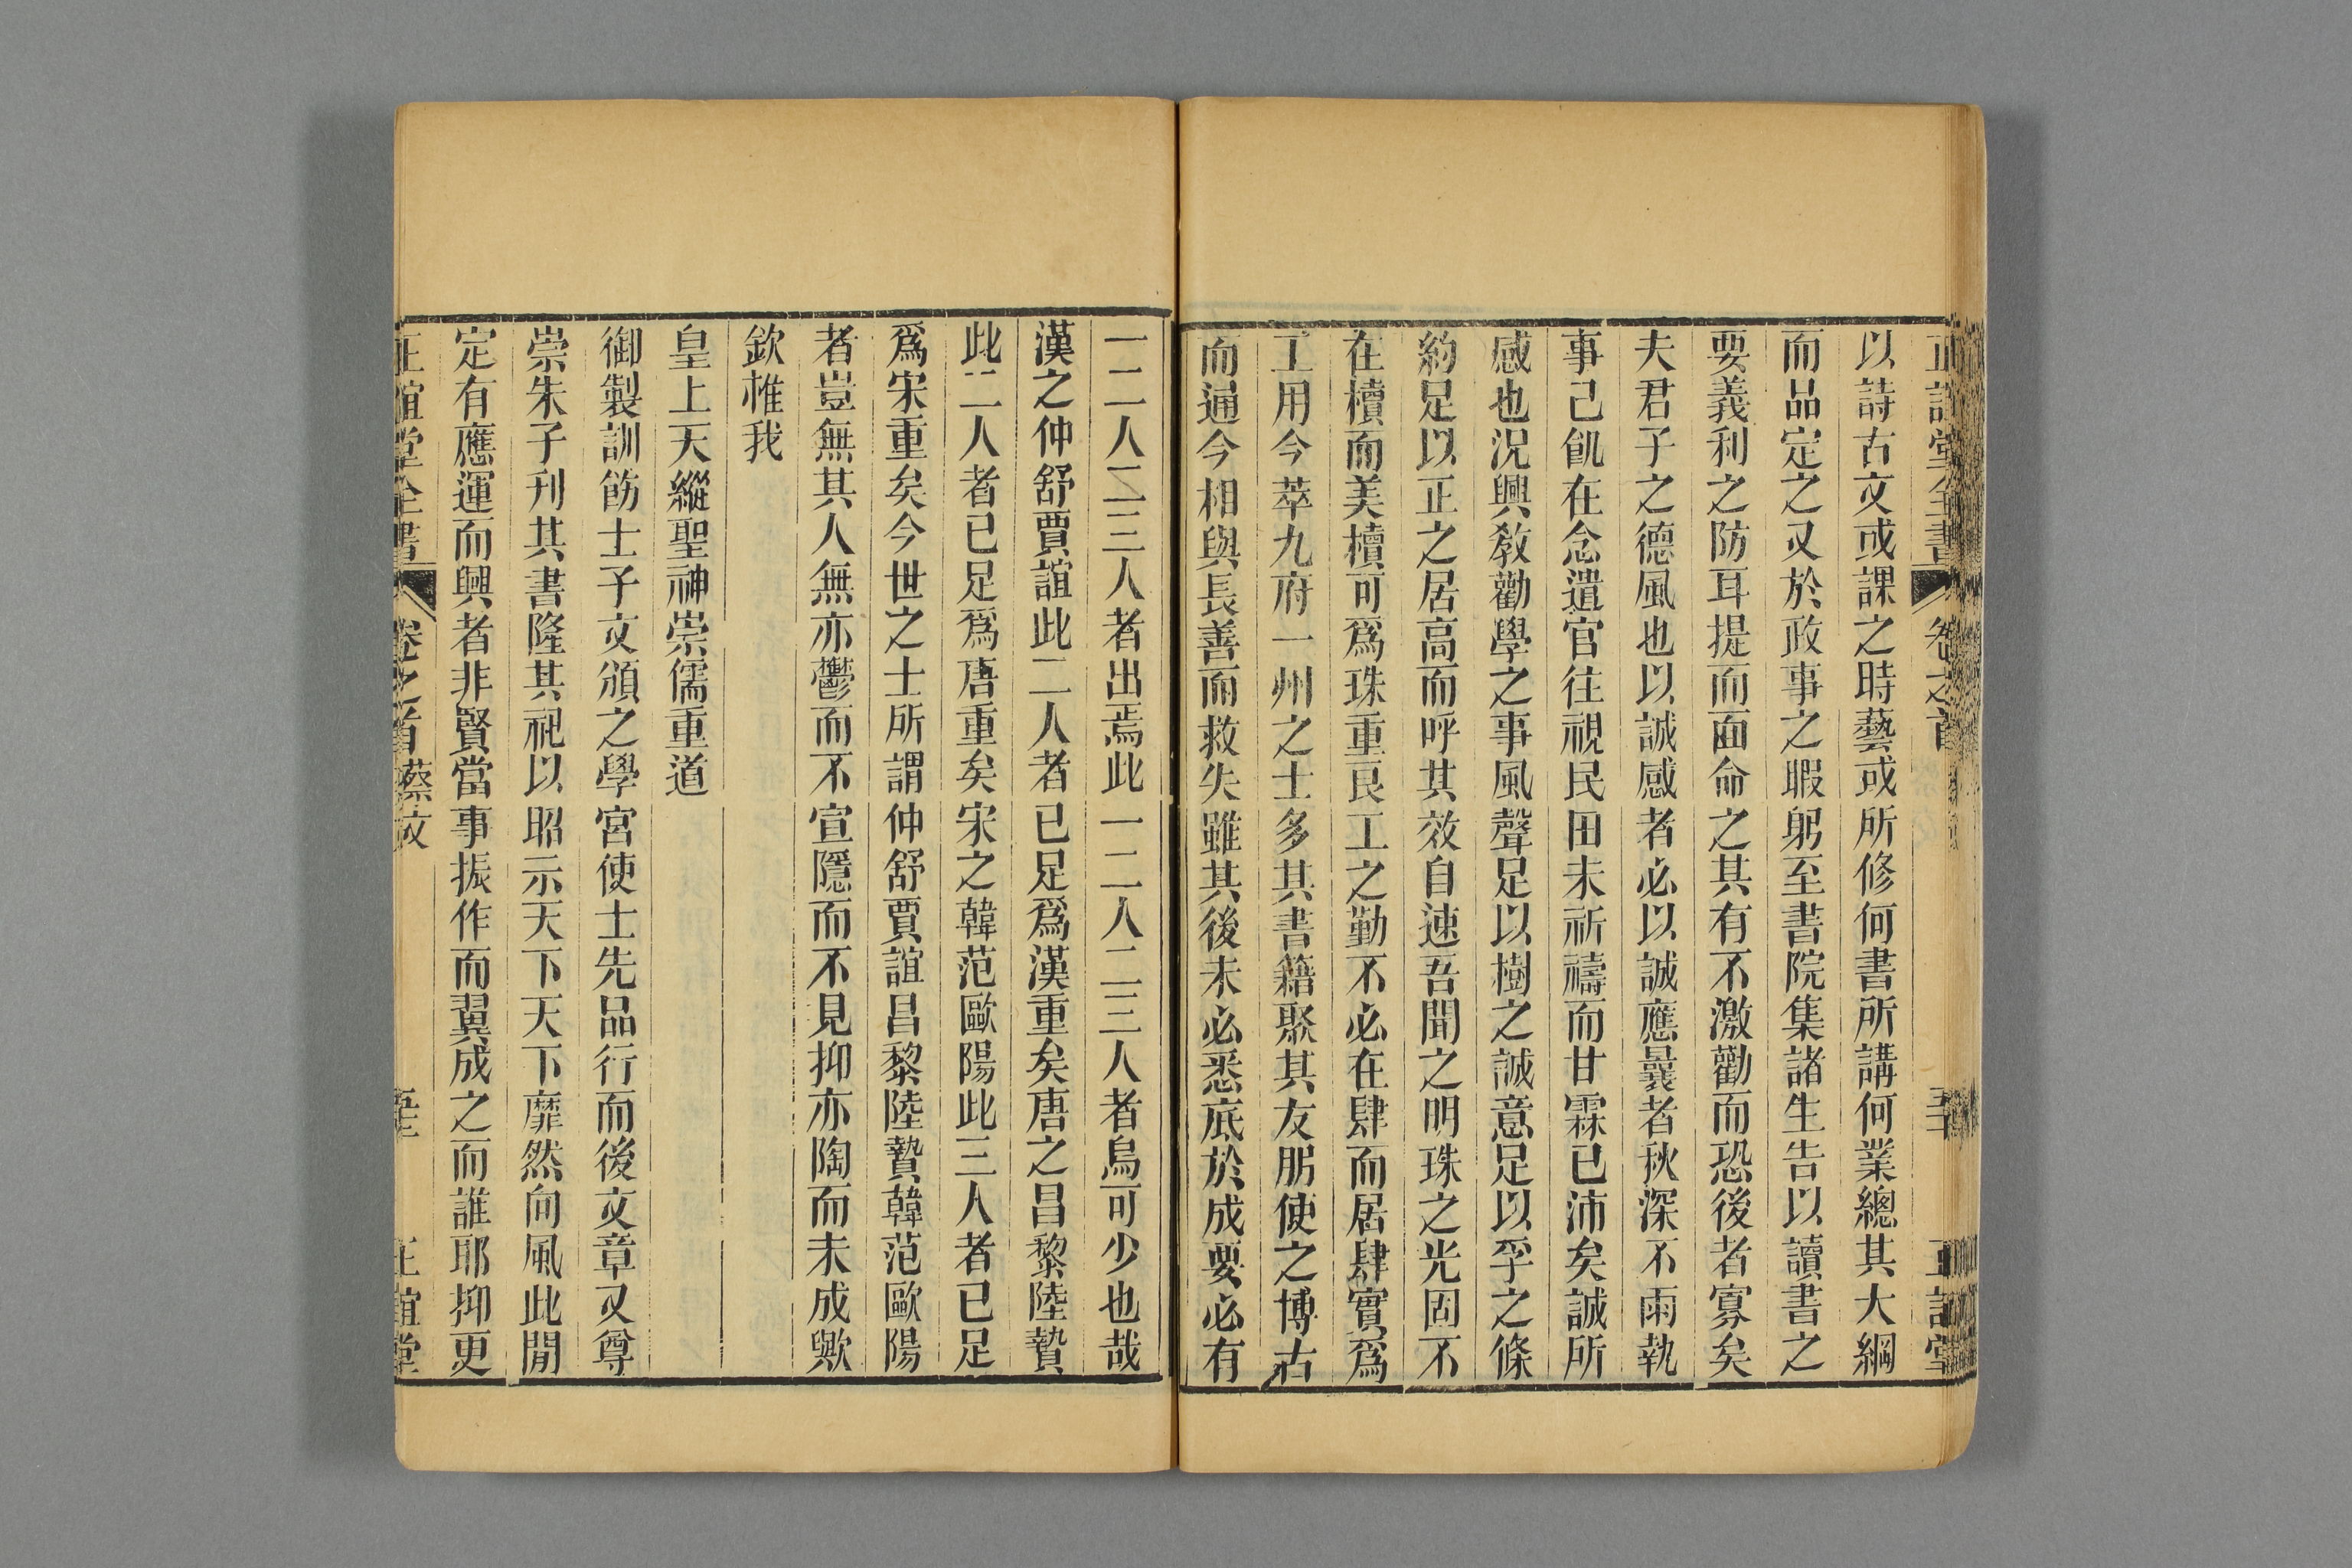 以詩古文或課之時藝或所修何書所講何業總其大綱
而品定之又於政事之暇躬至書院集諸生告以讀書之
要義利之防耳提而面命之其有不激勸而恐後者寡矣
夫君子之德風也以誠感者必以誠應曩者秋深不雨執
事己飢在念遣官往視民田未祈禱而甘霖已沛矣誠所
感也況興敎勸學之事風聲足以樹之誠意足以孚之條
約足以正之居高而呼其效自速吾聞之明珠之光固不
在櫝而美櫝可爲珠重良工之勤不必在肆而居肆實爲
工用今萃九府一州之士多其書籍聚其友朋使之博古
而通今相與長善而救失雖其後未必悉底於成要必有
一二人二三人者出焉此一二人二三人者烏可少也哉
漢之仲舒賈誼此二人者已足爲漢重矣唐之昌黎陸贄
此二人者已足爲唐重矣宋之韓范歐陽此三人者已足
爲宋重矣今世之士所謂仲舒賈誼昌黎陸贄韓范歐陽
者豈無其人無亦鬱而不宣隱而不見抑亦陶而未成歟
欽惟我
皇上天縱聖神崇儒重道
御製訓飭士子文頒之學宮使士先品行而後文章又尊
崇朱子刋其書隆其祀以昭示天下天下靡然向風此閒
定有應運而興者非賢當事振作而翼成之而誰耶抑更
正誼堂全書 卷之首 蔡文 正誼堂